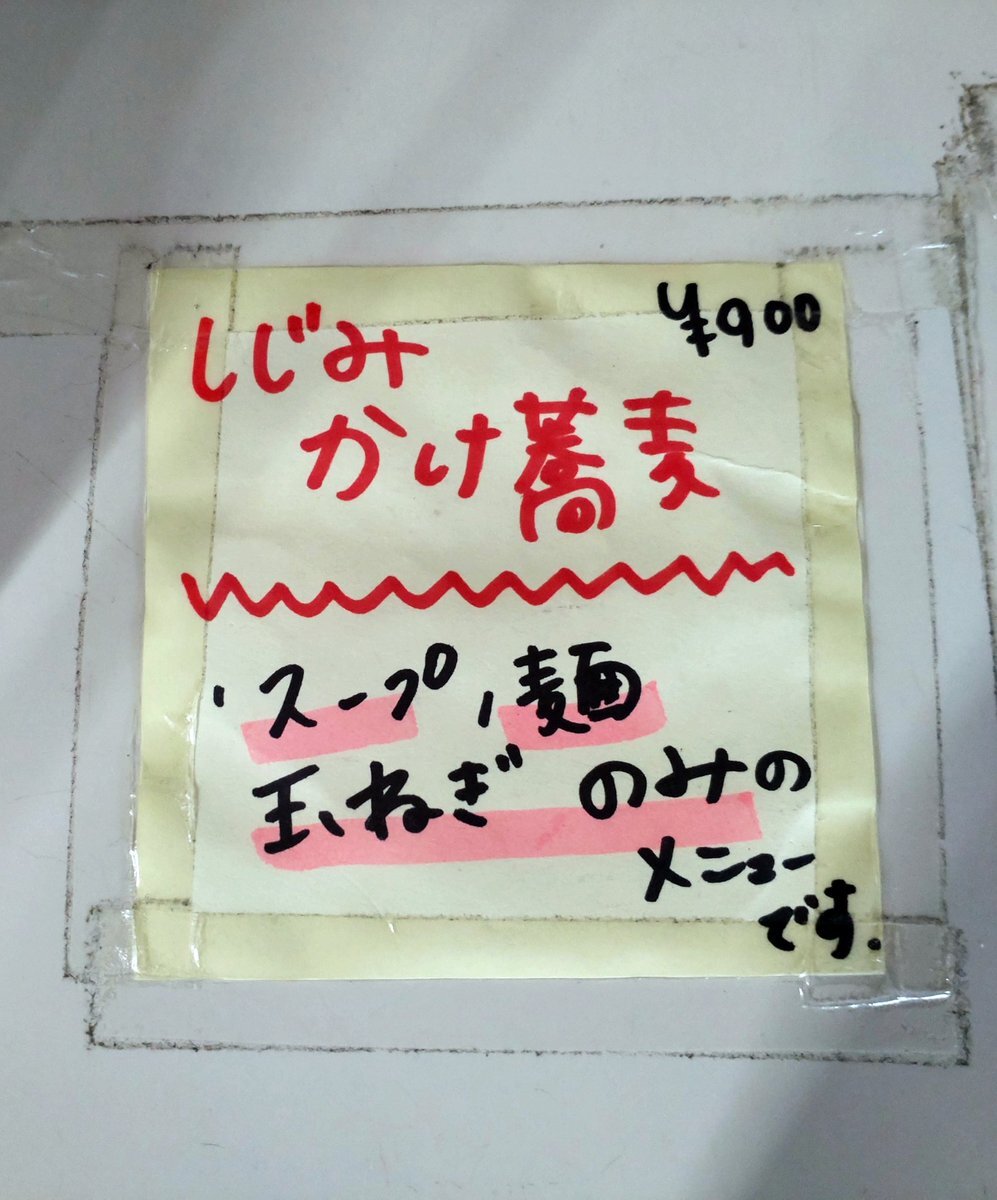 ¥900
しじみ
かけ蕎麦
・スープ,麺
玉ねぎ のみの
メニュー
です.